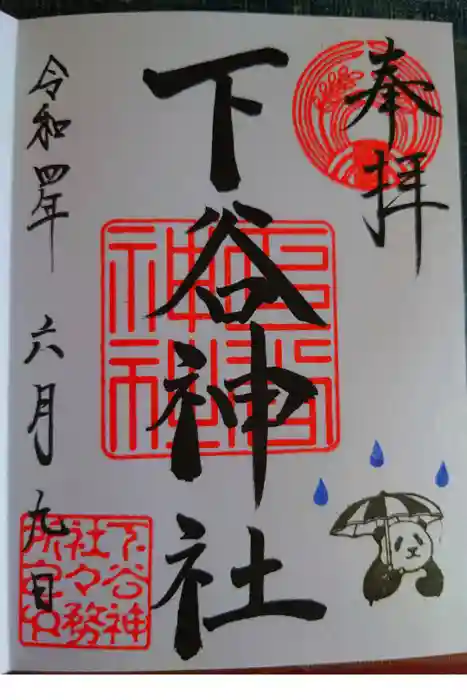 奉拝
下谷神社
令和四年 六月九日
下谷神
社々務
所之印